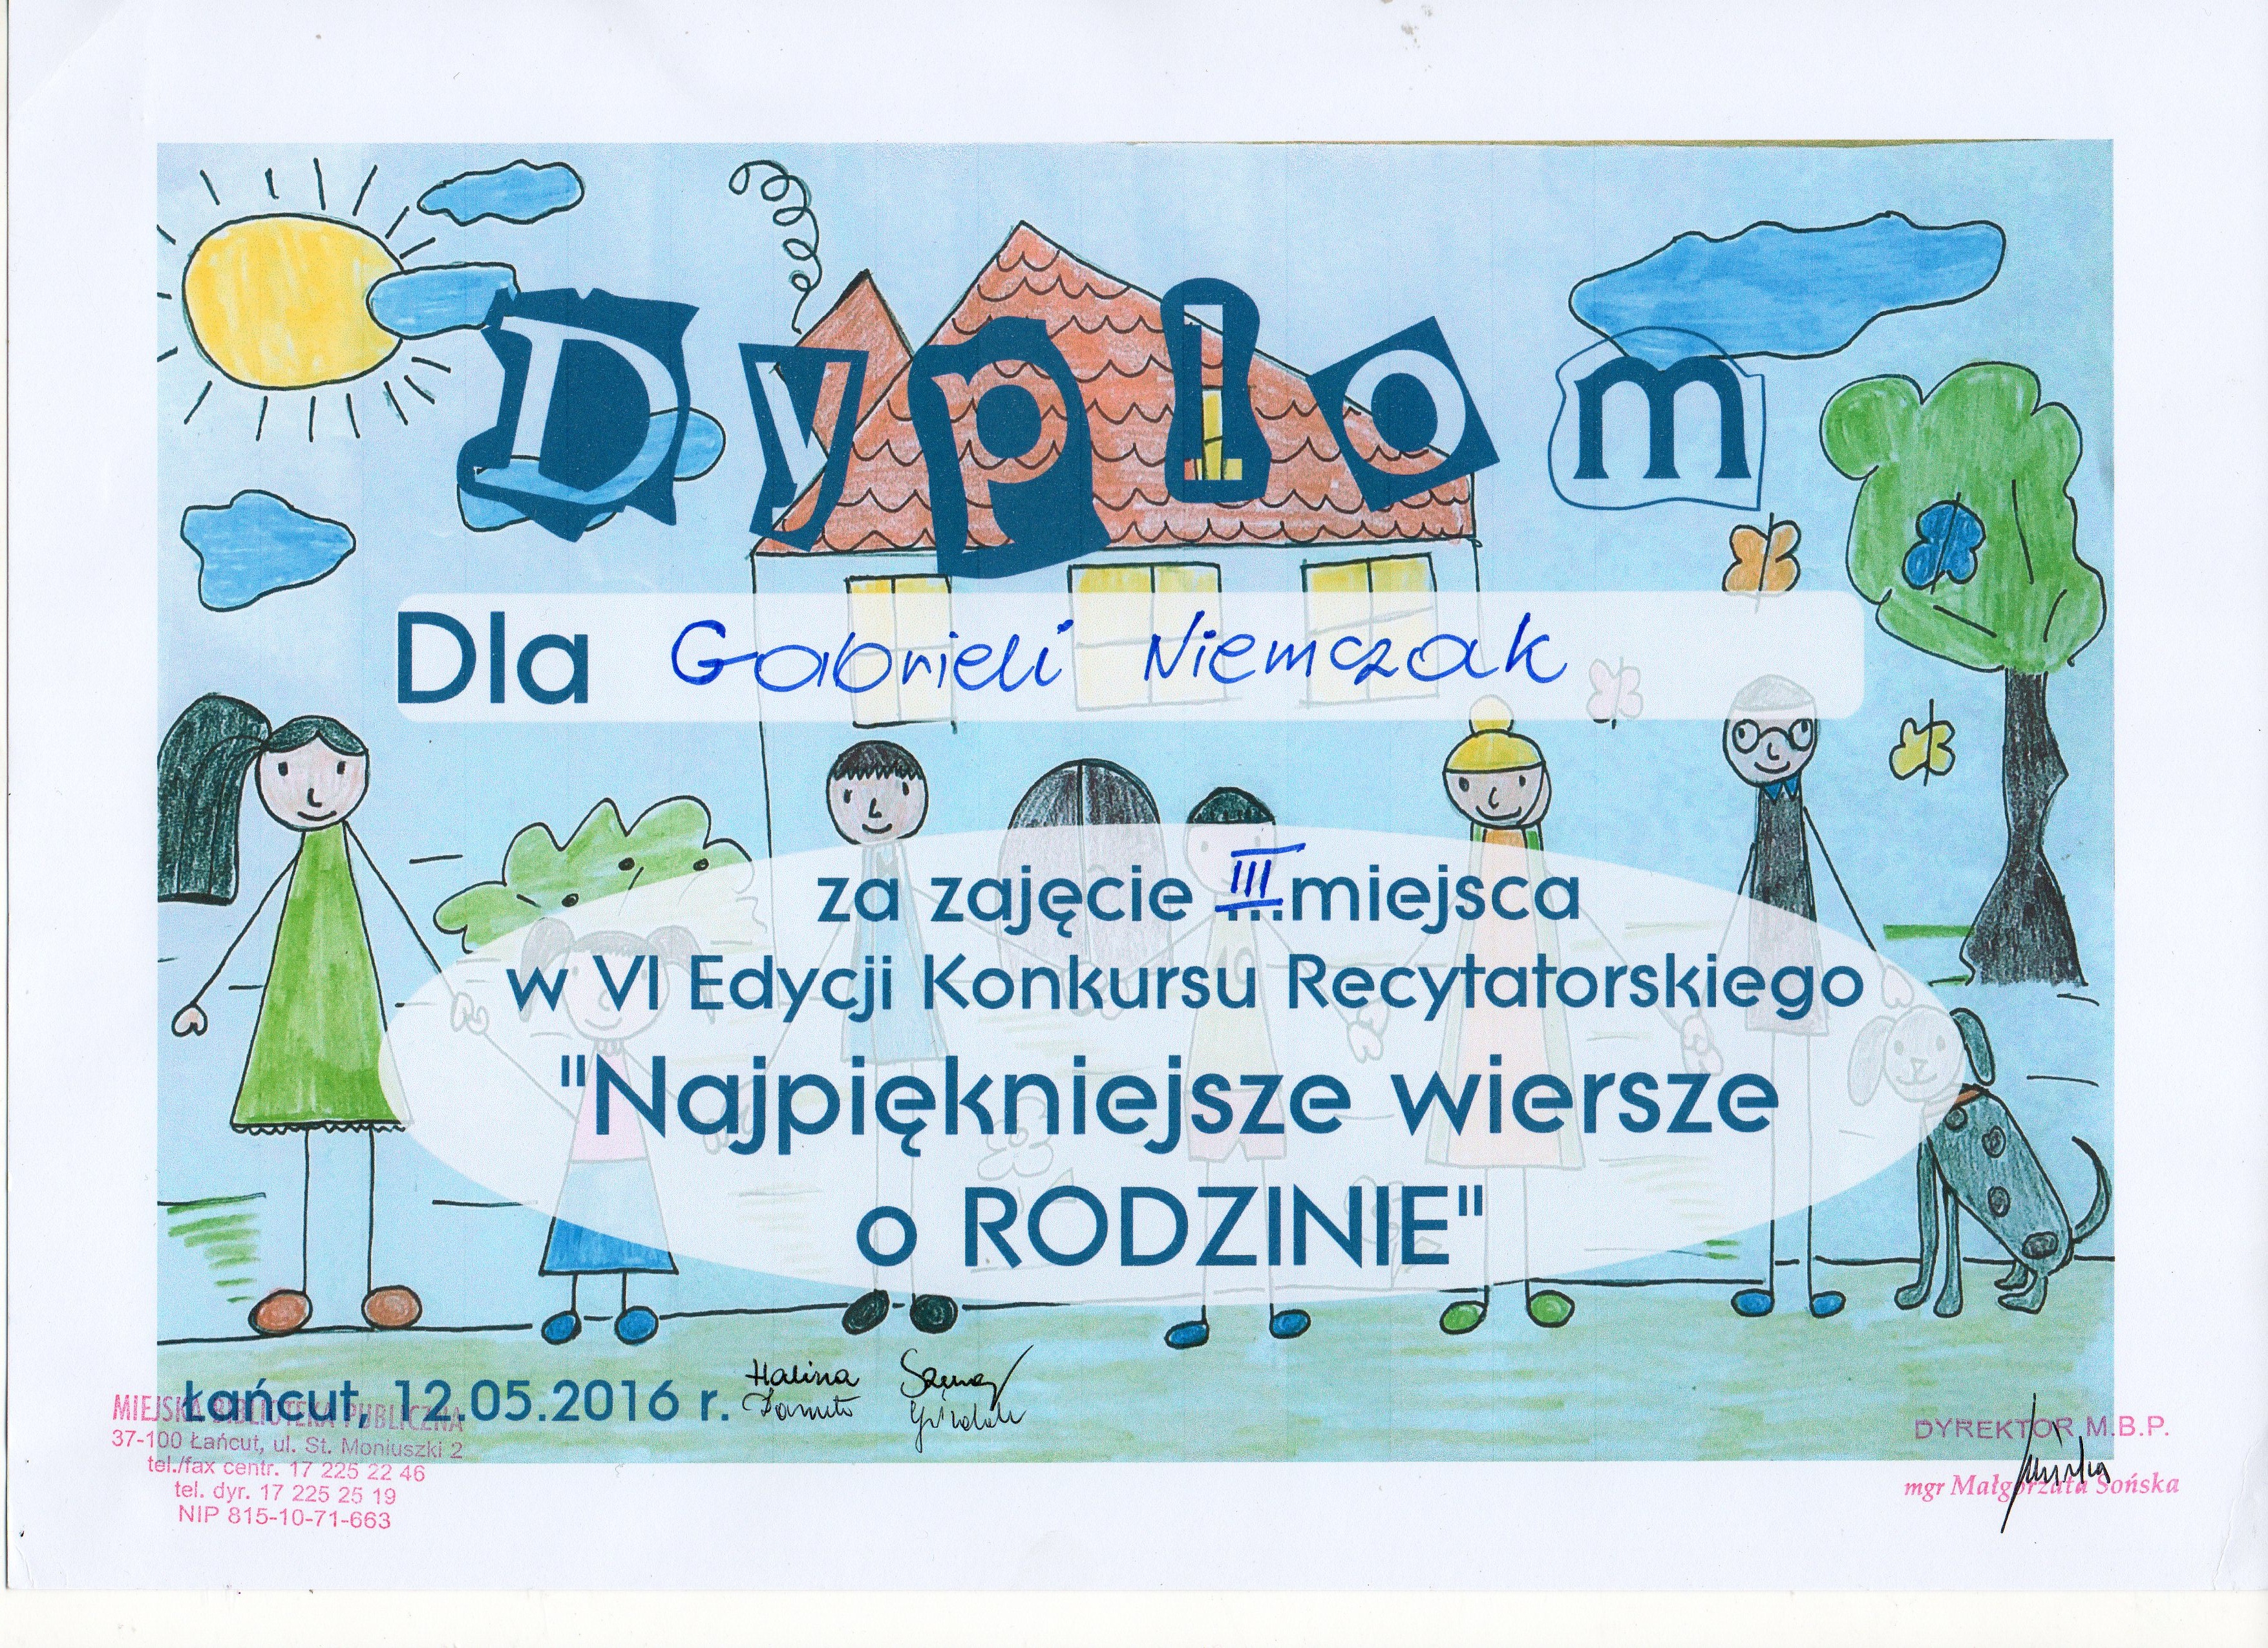 Dyplom
Dla Gabrieli Niemczak
za zajęcie III miejsca
w VI Edycji Konkursu Recytatorskiego
"Najpiękniejsze wiersze
o RODZINIE"
Łańcut, 12.05.2016 r.
Halina
MIEJSKA BIBLIOTEKA PUBLICZNA
37-100 Łańcut, ul. St. Moniuszki 2
tel./fax centr. 17 225 22 46
tel. dyr. 17 225 25 19
NIP 815-10-71-663
DYREKTOR M.B.P.
mgr Małgorzata Sońska